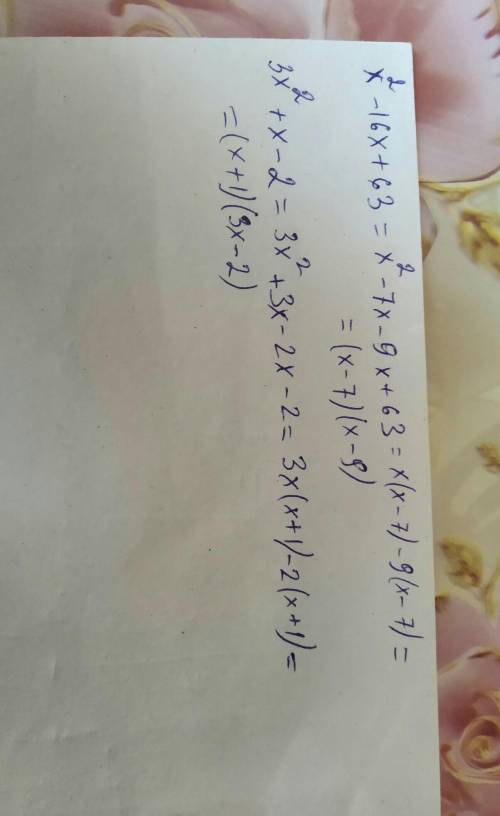 x² - 16x + 63 = x² - 7x - 9x + 63 = x(x - 7) - 9(x - 7) =
= (x - 7)(x - 9)
3x² + x - 2 = 3x² + 3x - 2x - 2 = 3x(x + 1) - 2(x + 1) =
= (x + 1)(3x - 2)